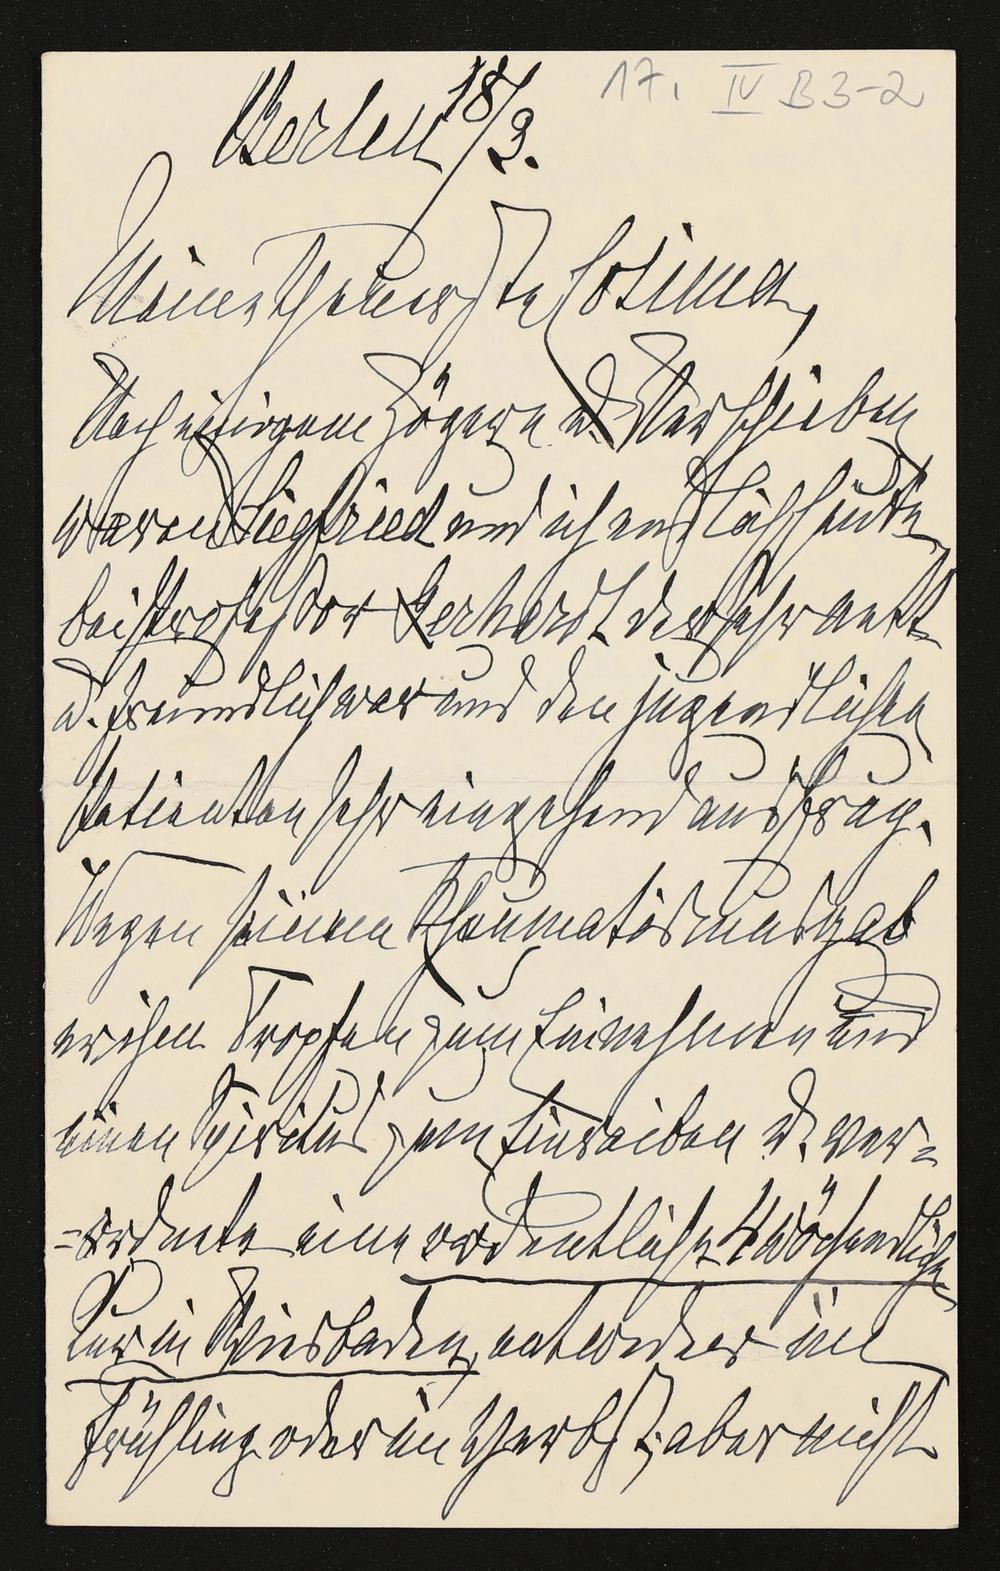 17. IV B 3-2
Berlin 18/3.
Meine theuerste Cosima,
Nach einigem Zögern u. Verschieben
waren Siegfried und ich endlich heute
bei Professor Gerhardt der sehr nett
u. freundlich war und den jugendlichen
Patienten sehr eingehend ausfrug.
Wegen seinem Rheumatismus gab
er ihm Tropfen zum Einnehmen und
einen Spiritus zum Einreiben u. ver=
=ordnete eine ordentliche 4 wöchendliche
Kur in Wiesbaden, entweder im
Frühling oder im Herbst, aber nicht